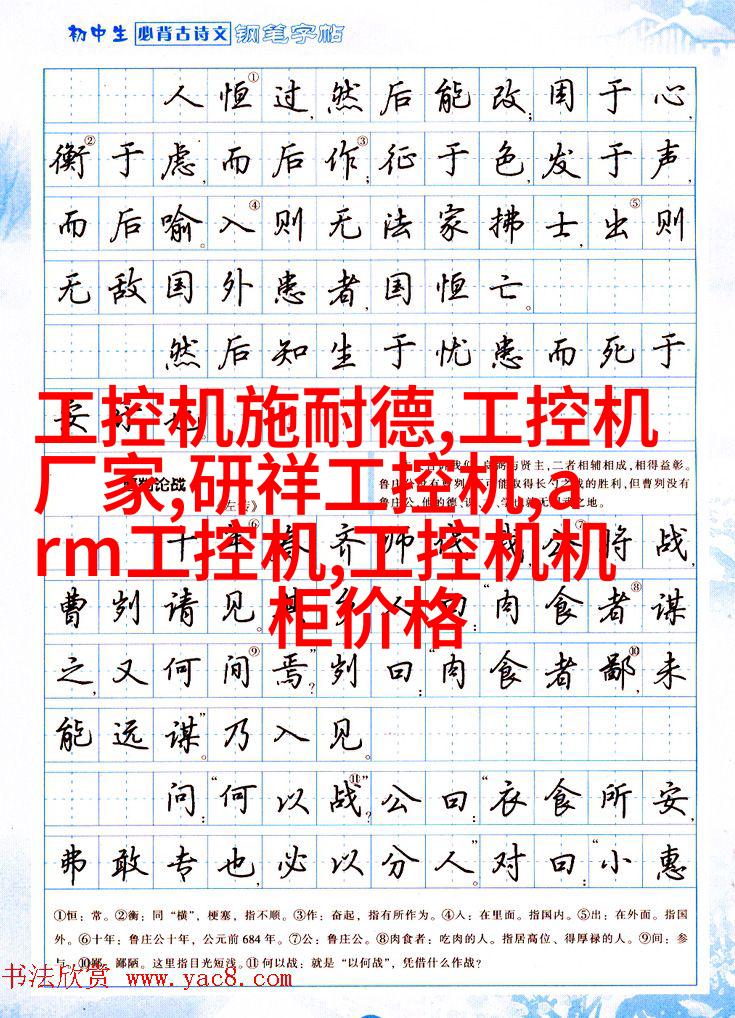 初中生 必背古诗文 钢笔字帖
人恒①过,然后能改;困于心,
衡②于虑,而后作③;征于色,发于声,
而后喻。入④则无法家拂士,出⑤则
无敌国外患者,国恒亡。
然后知生于忧患而死于
工控机施耐德,工控机
厂家,研祥工控机,a
rm工控机,工控机机
柜价格
论战
《左传》
十年⑥春,齐师伐我,公⑦将战,
曹刿请见。其乡人曰:“肉食者⑧谋
之,又何间⑨焉?”刿曰:“肉食者鄙⑩,未
能远谋。”乃入见。
问:“何以战⑪?”公曰:“衣食所安,
弗敢专也,必以分人。”对曰:“小惠
①恒:常。②衡:同“横”,梗塞,指不顺。③作:奋起,指有所作为。④入:在里面。指国内。⑤出:在外面。指国
外。⑥十年:鲁庄公十年,公元前684年。⑦公:鲁庄公。⑧肉食者:吃肉的人。指居高位、得厚禄的人。⑨间:参
与。⑩鄙:鄙陋。这里指目光短浅。⑪何以战:就是“以何战”,凭借什么作战?
书法欣赏 www.yac8.com